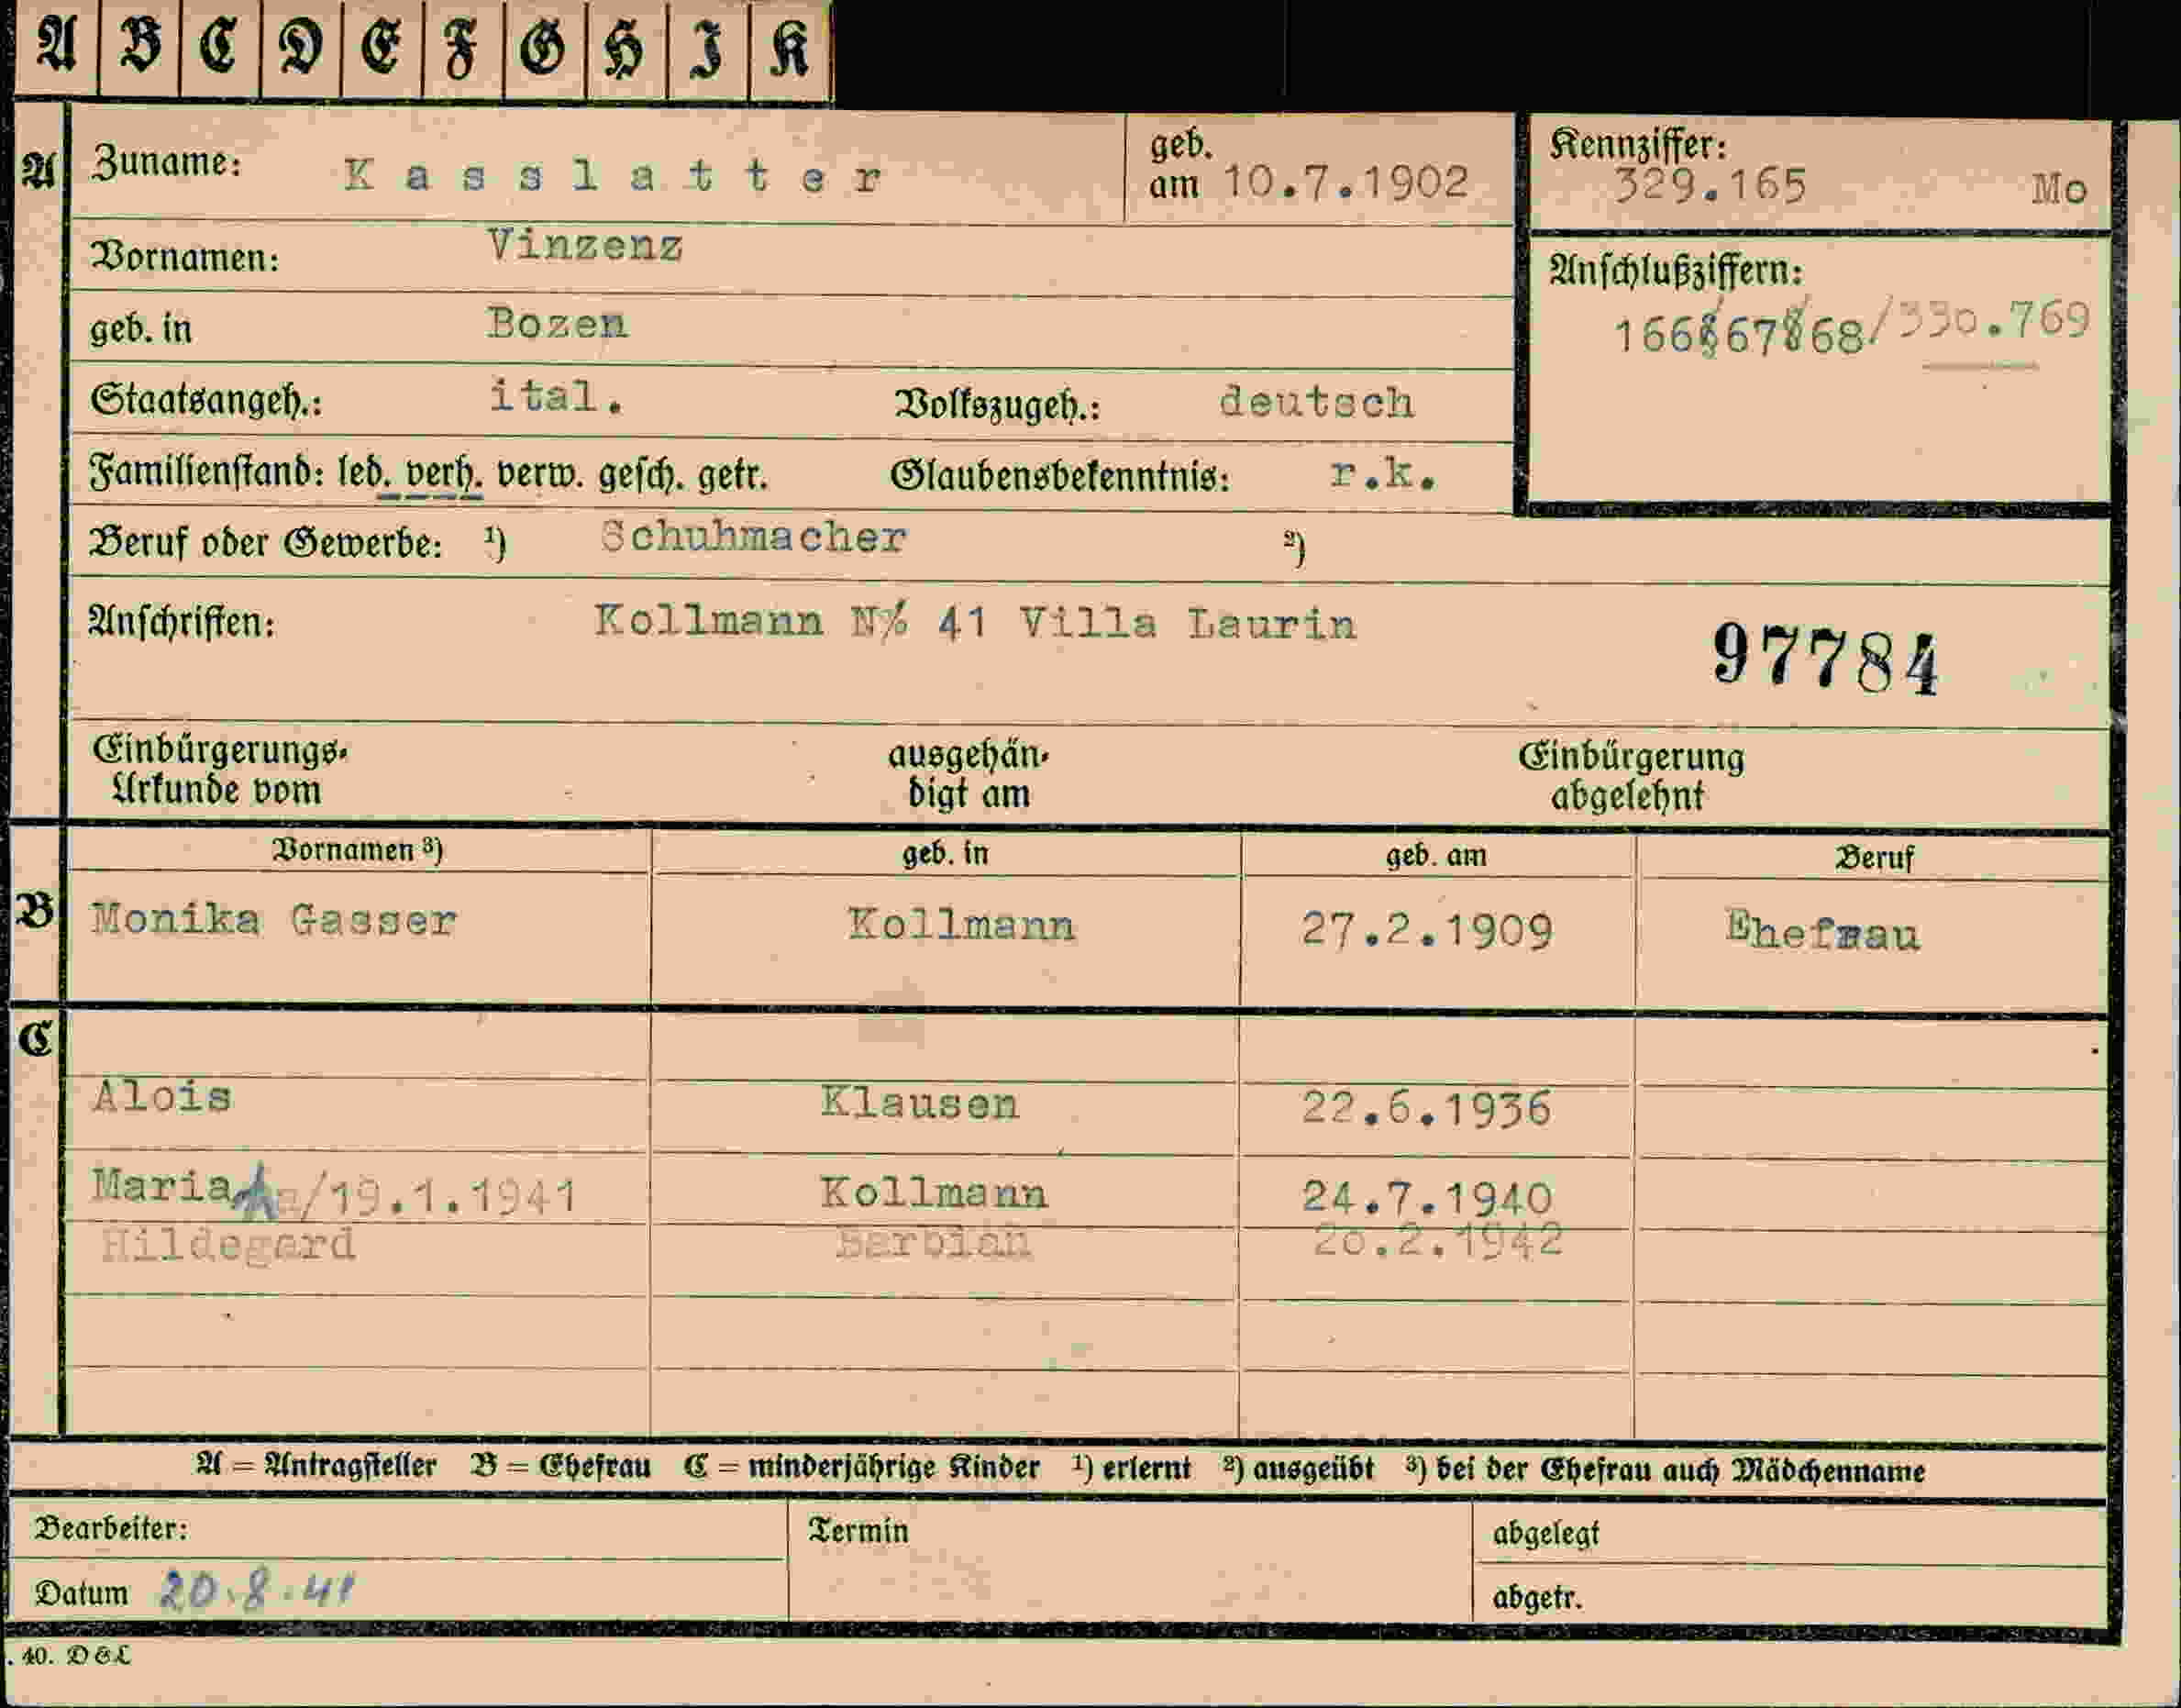 A B C D E F G H I K
A Zuname: Kasslatter geb. am 10.7.1902
Kennziffer: 329.165 Mo
Vornamen: Vinzenz
Anschlußziffern:
166/67/68/330.769
geb. in Bozen
Staatsangeh.: ital. Volkszugeh.: deutsch
Familienstand: led. verh. verw. gesch. getr. Glaubensbekenntnis: r.k.
Beruf oder Gewerbe: ¹) Schuhmacher ²)
Anschriften: Kollmann N% 41 Villa Laurin
97784
Einbürgerungs-Urkunde vom ausgehändigt am Einbürgerung abgelehnt
Vornamen ³) geb. in geb. am Beruf
B Monika Gasser Kollmann 27.2.1909 Ehefrau
C
Alois Klausen 22.6.1936
Maria /19.1.1941 Kollmann 24.7.1940
Hildegard Barbian .2.1942
A = Antragsteller B = Ehefrau C = minderjährige Kinder ¹) erlernt ²) ausgeübt ³) bei der Ehefrau auch Mädchenname
Bearbeiter: Termin abgelegt
Datum 20.8.41 abgetr.
. 40. D&L